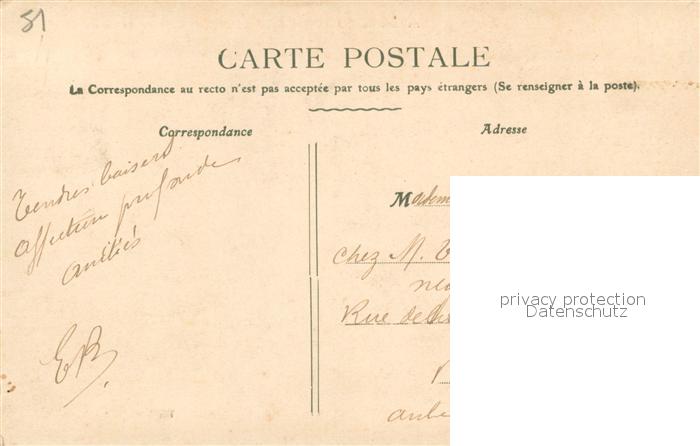 51
CARTE POSTALE
La Correspondance au recto n'est pas acceptée par tous les pays étrangers (Se renseigner à la poste).
Correspondance
Adresse
Tendres baisers
affection profonde
amitiés
ER
chez M.
Rue de
privacy protection
Datenschutz